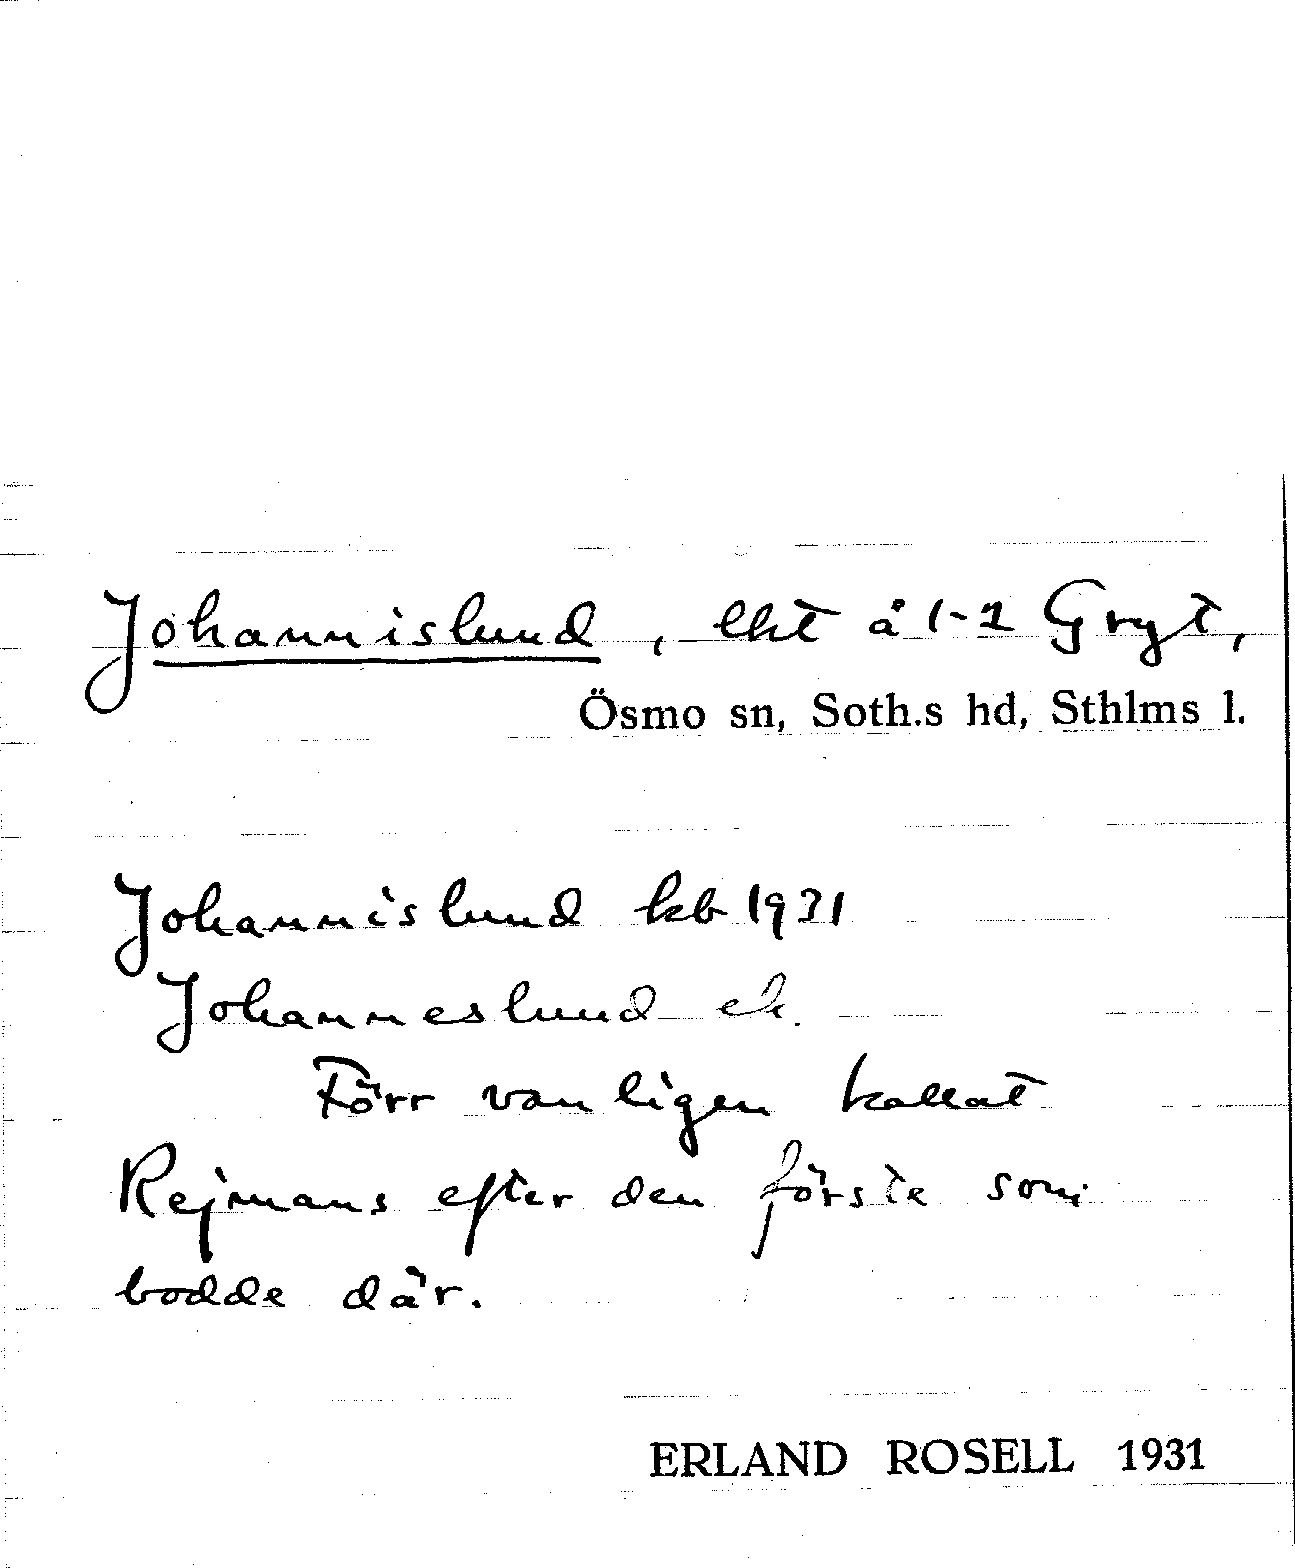 Johannislund, lht å 1-2 Gryt,
Ösmo sn, Soth.s hd, Sthlms l.
Johannislund kb 1931
Johanneslund ek.
Förr vanligen kallat
Rejmans efter den förste som
bodde där.
ERLAND ROSELL 1931